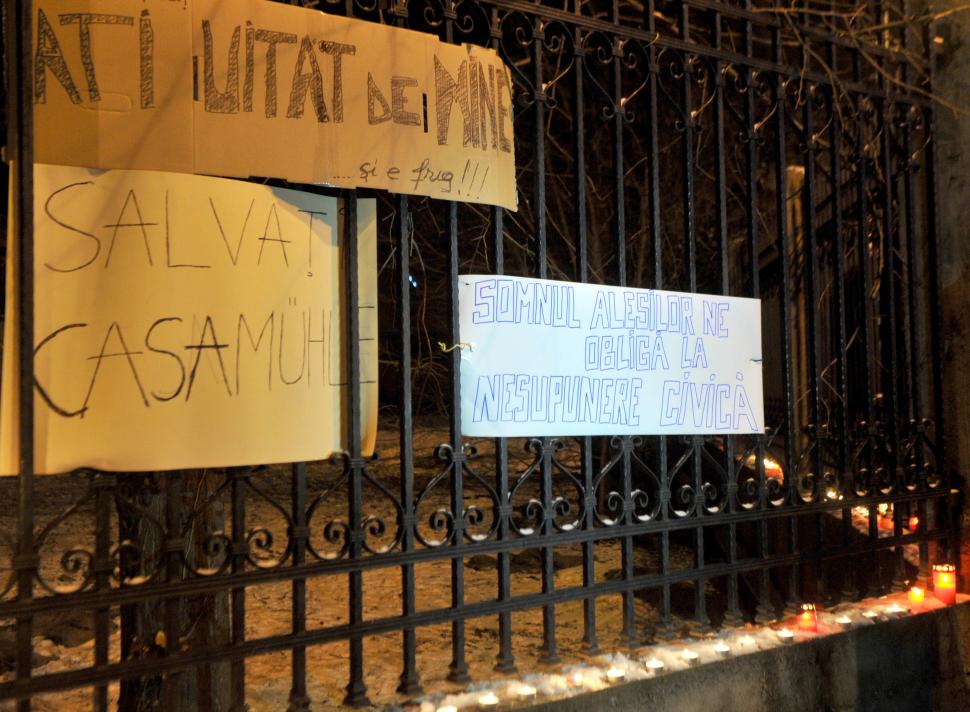 ATI UITAT DE MINE
... și e frig!!!
SALVAȚ
CASAMÜHLE
SOMNUL ALEȘILOR NE
OBLIGĂ LA
NESUPUNERE CIVICĂ